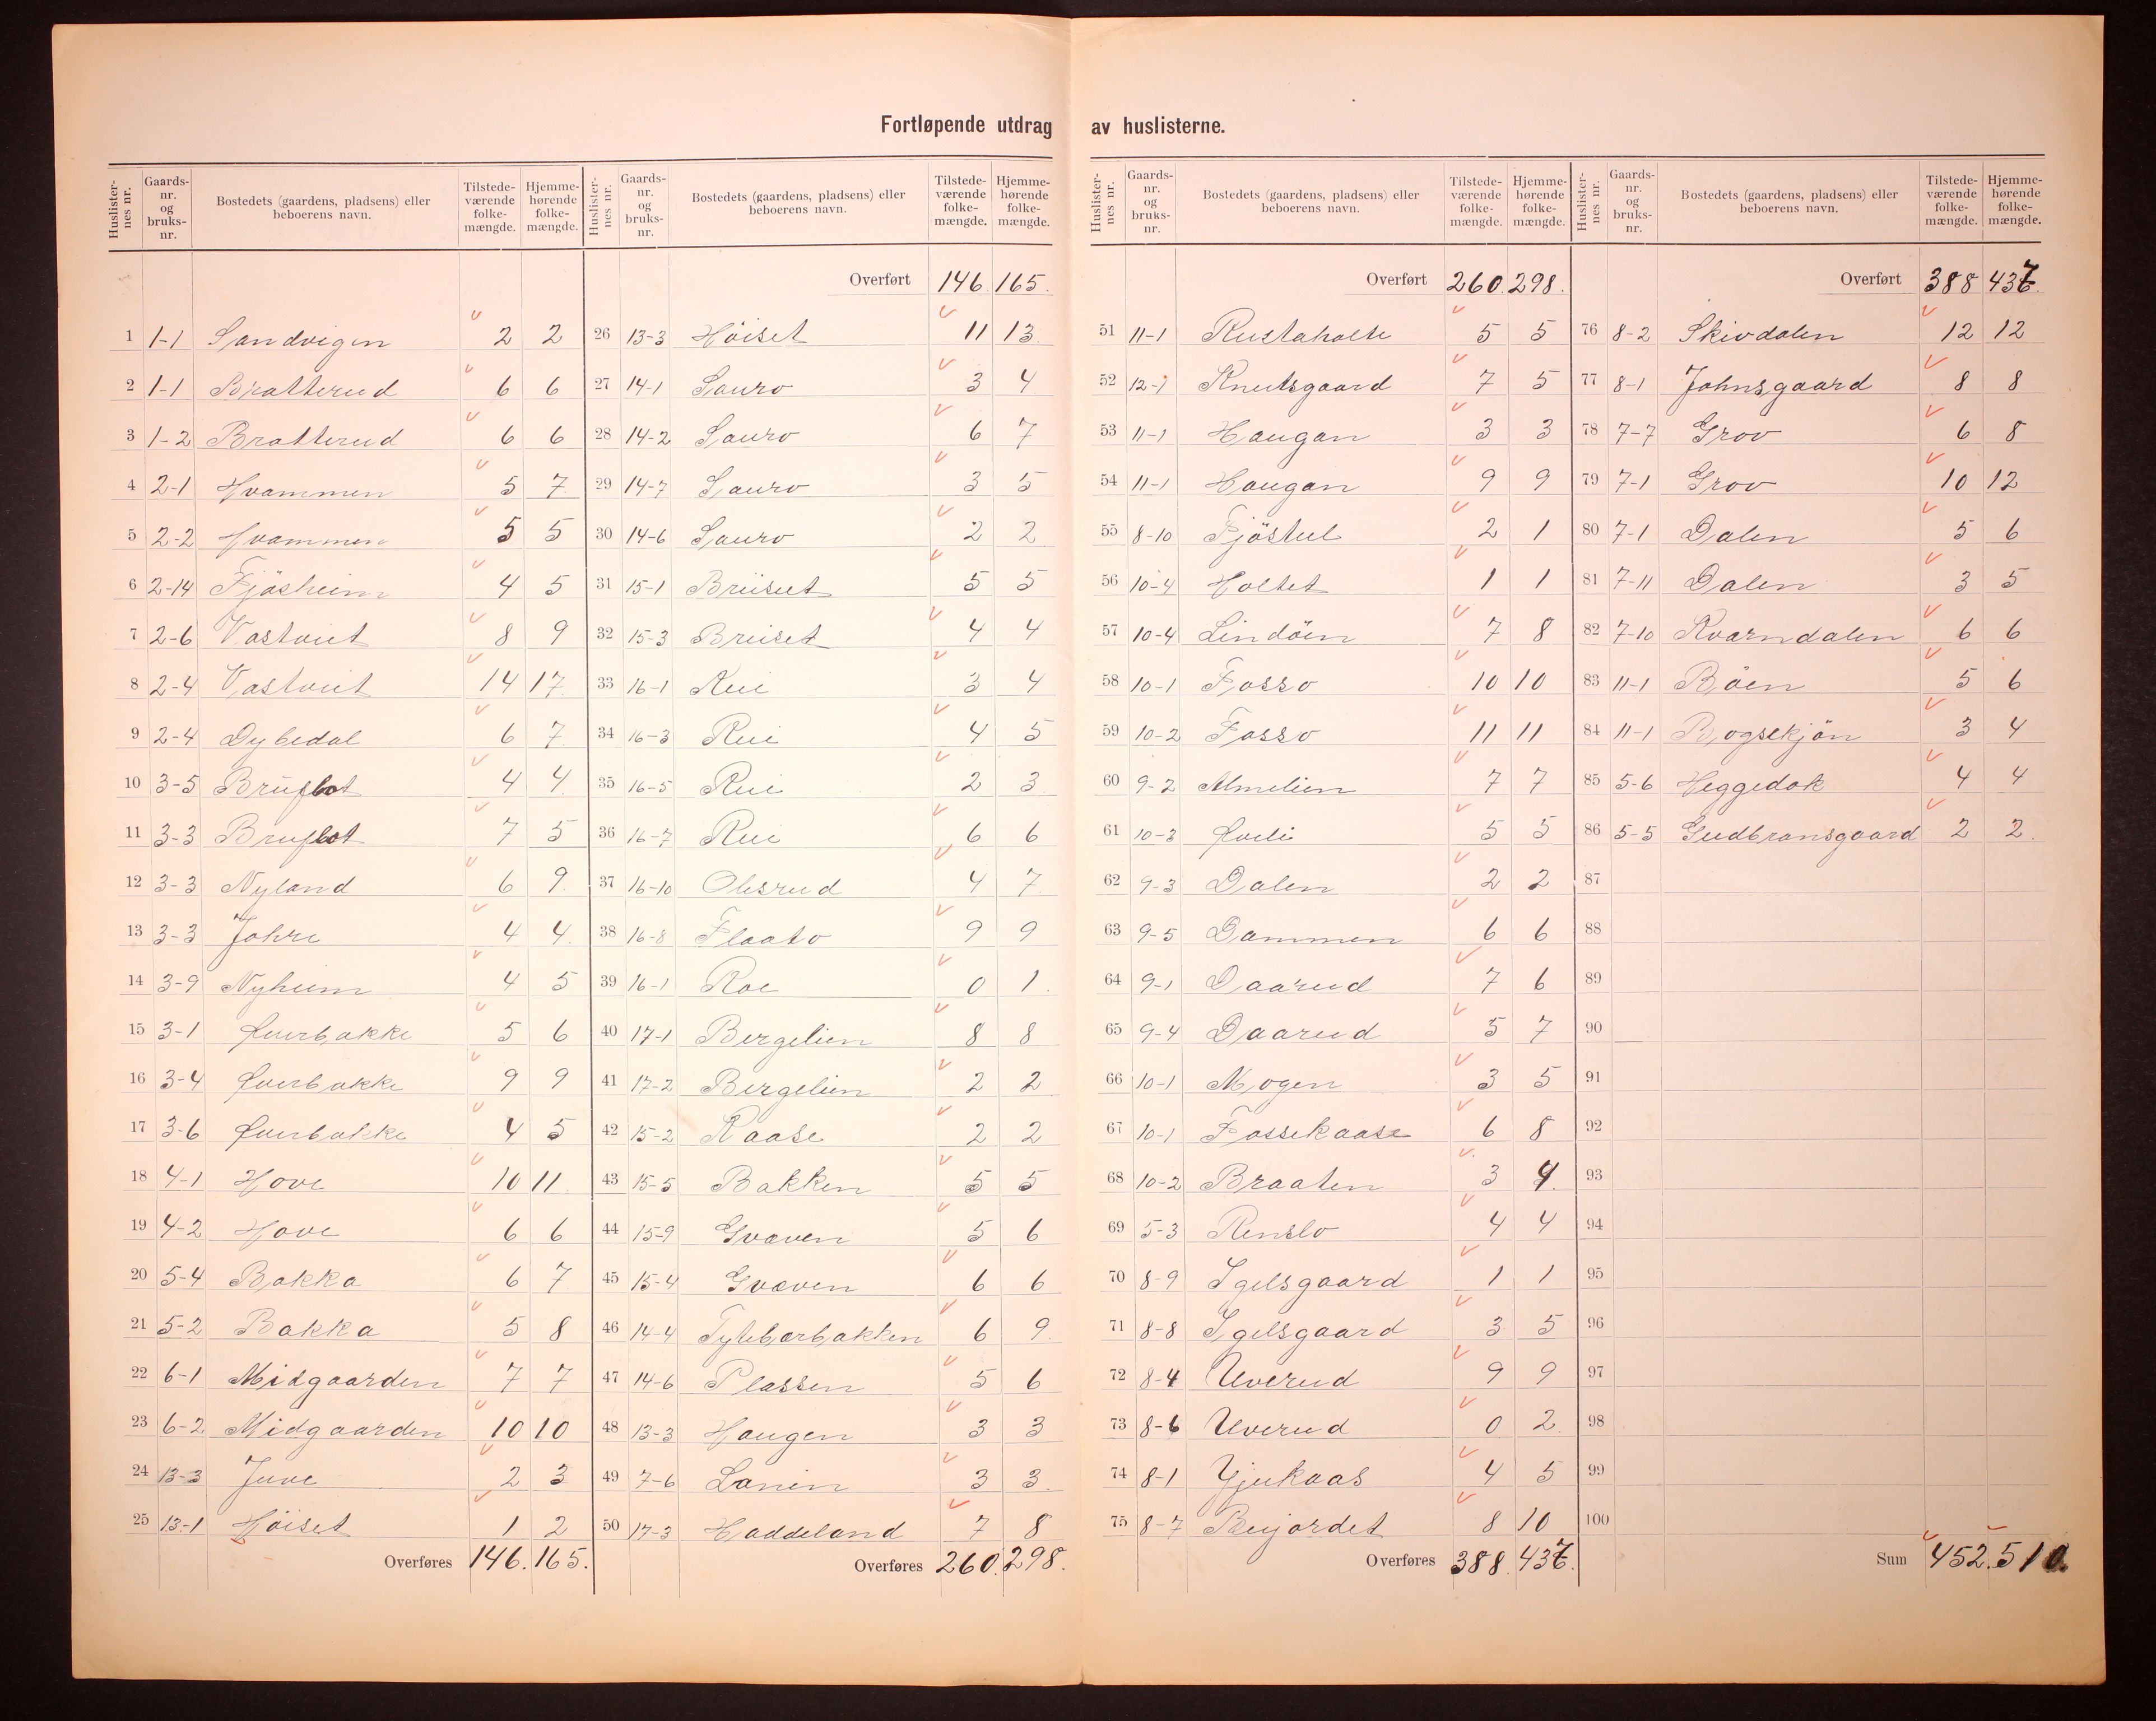 Fortløpende utdrag av huslisterne.
Huslisternes nr. Gaardsnr. og bruksnr. Bostedets (gaardens, pladsens) eller beboerens navn. Tilstedeværende folkemængde. Hjemmehørende folkemængde.
1 1-1 Sandvigen 2 2
2 1-1 Bratterud 6 6
3 1-2 Bratterud 6 6
4 2-1 Hvammen 5 7
5 2-2 Hvammen 5 5
6 2-14 Fjösheim 4 5
7 2-6 Vastveit 8 9
8 2-4 Vastveit 14 17
9 2-4 Dybedal 6 7
10 3-5 Bruflot 4 4
11 3-3 Bruflot 7 5
12 3-3 Nyland 6 9
13 3-3 Johre 4 4
14 3-9 Nyheim 4 5
15 3-1 Øverbakke 5 6
16 3-4 Øverbakke 9 9
17 3-6 Øverbakke 4 5
18 4-1 Hove 10 11
19 4-2 Hove 6 6
20 5-4 Bakka 6 7
21 5-2 Bakka 5 8
22 6-1 Midgaarden 7 7
23 6-2 Midgaarden 10 10
24 13-3 Juve 2 3
25 13-1 Höiset 1 2
Overføres 146. 165.
Huslisternes nr. Gaardsnr. og bruksnr. Bostedets (gaardens, pladsens) eller beboerens navn. Tilstedeværende folkemængde. Hjemmehørende folkemængde.
Overført 146. 165.
26 13-3 Höiset 11 13
27 14-1 Sauro 3 4
28 14-2 Sauro 6 7
29 14-7 Sauro 3 5
30 14-6 Sauro 2 2
31 15-1 Briiset 5 5
32 15-3 Briiset 4 4
33 16-1 Rui 3 4
34 16-3 Rui 4 5
35 16-5 Rui 2 3
36 16-7 Rui 6 6
37 16-10 Olesrud 4 7
38 16-8 Flaato 9 9
39 16-1 Roe 0 1
40 17-1 Bergelien 8 8
41 17-2 Bergelien 2 2
42 15-2 Kaase 2 2
43 15-5 Bakken 5 5
44 15-9 Gvaven 5 6
45 15-4 Gvaven 6 6
46 14-4 Tyteborbakken 6 9
47 14-6 Plassen 5 6
48 13-3 Haugen 3 3
49 7-6 Lanin 3 3
50 17-3 Haddeland 7 8
Overføres 260. 298.
Huslisternes nr. Gaardsnr. og bruksnr. Bostedets (gaardens, pladsens) eller beboerens navn. Tilstedeværende folkemængde. Hjemmehørende folkemængde.
Overført 260. 298.
51 11-1 Rustaholte 5 5
52 12-1 Knutsgaard 7 5
53 11-1 Haugan 3 3
54 11-1 Haugan 9 9
55 8-10 Fjöstul 2 1
56 10-4 Holtet 1 1
57 10-4 Lindöen 7 8
58 10-1 Fosso 10 10
59 10-2 Fosso 11 11
60 9-2 Almelien 7 7
61 10-3 Øveli 5 5
62 9-3 Dalen 2 2
63 9-5 Dammen 6 6
64 9-1 Daarud 7 6
65 9-4 Daarud 5 7
66 10-1 Mogen 3 5
67 10-1 Fossekaasa 6 8
68 10-2 Braaten 3 4
69 5-3 Renslo 4 4
70 8-9 Igelsgaard 1 1
71 8-8 Igelsgaard 3 5
72 8-4 Uverud 9 9
73 8-6 Uverud 0 2
74 8-1 Gjukaas 4 5
75 8-7 Bujordet 8 10
Overføres 388. 437.
Huslisternes nr. Gaardsnr. og bruksnr. Bostedets (gaardens, pladsens) eller beboerens navn. Tilstedeværende folkemængde. Hjemmehørende folkemængde.
Overført 388 437.
76 8-2 Skivdalen 12 12
77 8-1 Johnsgaard 8 8
78 7-7 Grov 6 8
79 7-1 Grov 10 12
80 7-1 Dalen 5 6
81 7-11 Dalen 3 5
82 7-10 Kvarndalen 6 6
83 11-1 Böen 5 6
84 11-1 Bogsekjön 3 4
85 5-6 Heggedok 4 4
86 5-5 Gudbransgaard 2 2
87
88
89
90
91
92
93
94
95
96
97
98
99
100
Sum 452. 510.